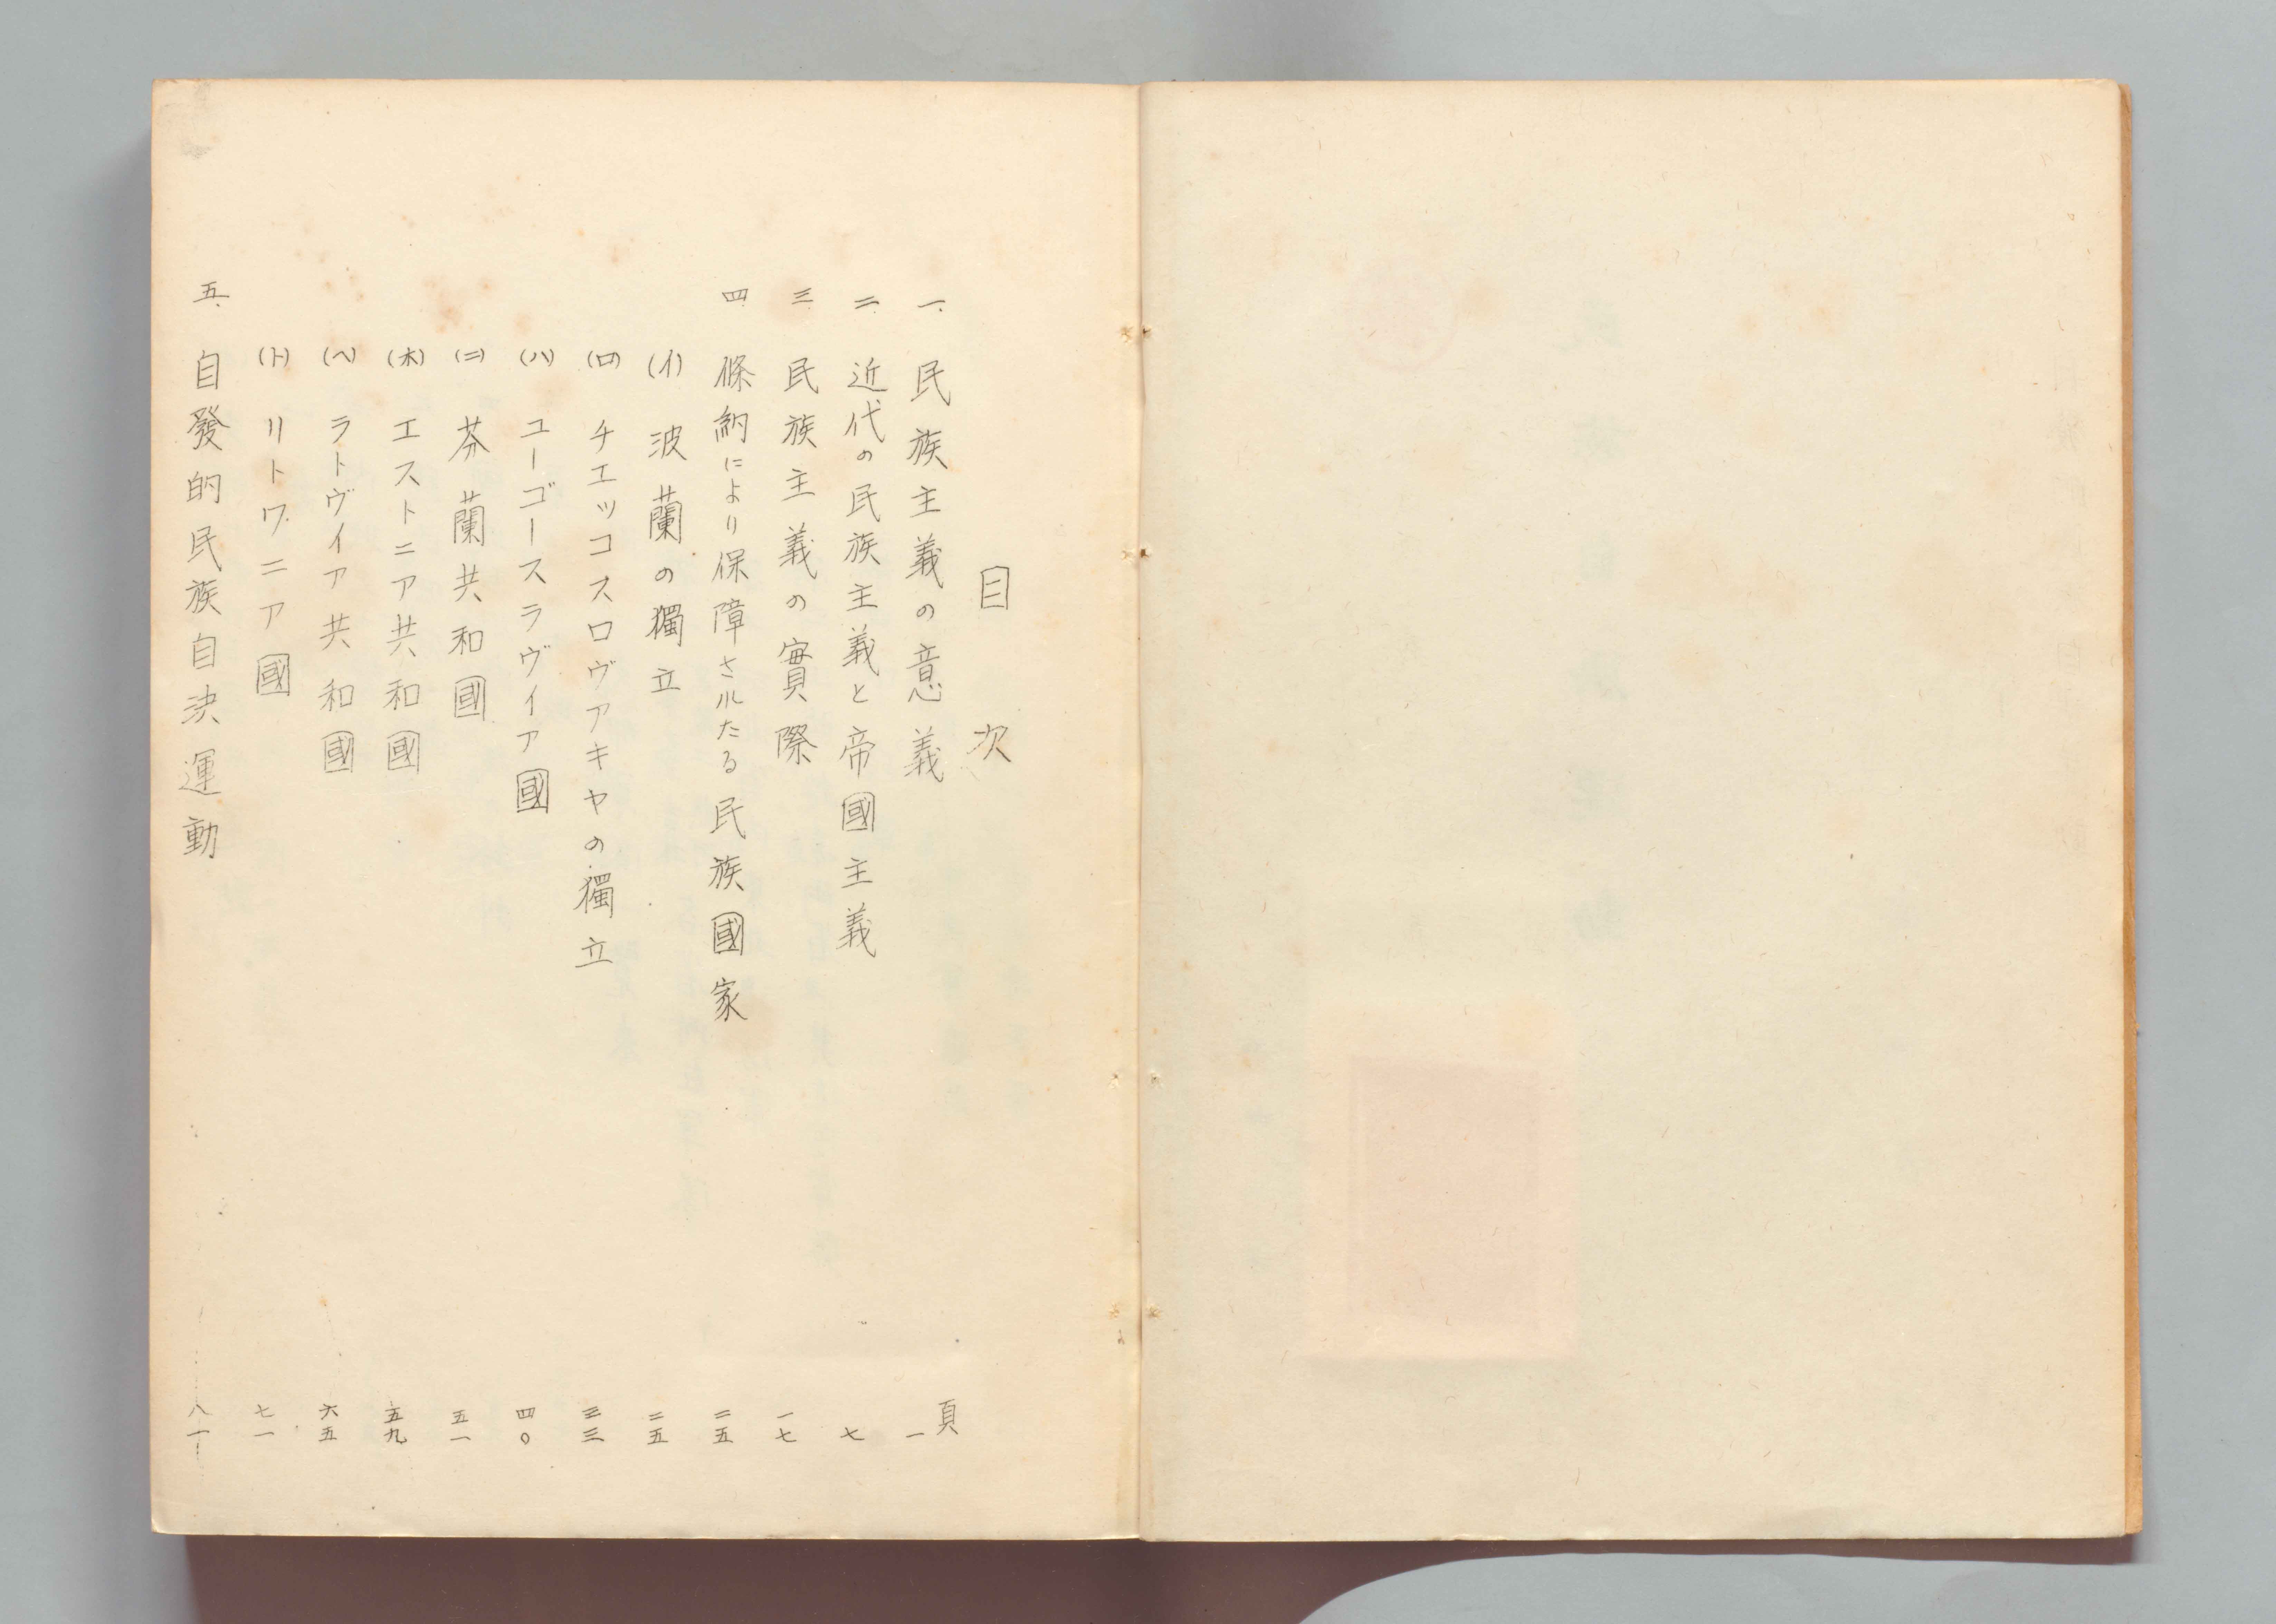 目次
頁
一、民族主義の意義 一
二、近代の民族主義と帝國主義 七
三、民族主義の實際 一七
四、條約により保障されたる民族國家 二五
(イ) 波蘭の獨立 二五
(ロ) チエッコスロヴアキヤの獨立 三三
(ハ) ユーゴースラヴイア國 四〇
(ニ) 芬蘭共和國 五一
(ホ) エストニア共和國 五九
(ヘ) ラトヴイア共和國 六五
(ト) リトワニア國 七一
五、自發的民族自決運動 八一